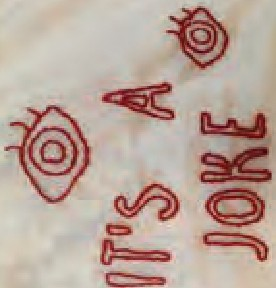 IT'S A
JOKE